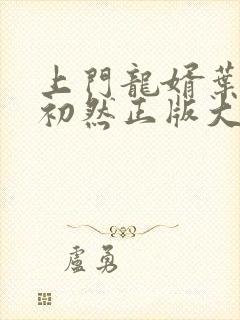 上門龍婿葉
初然正版大
盧勇